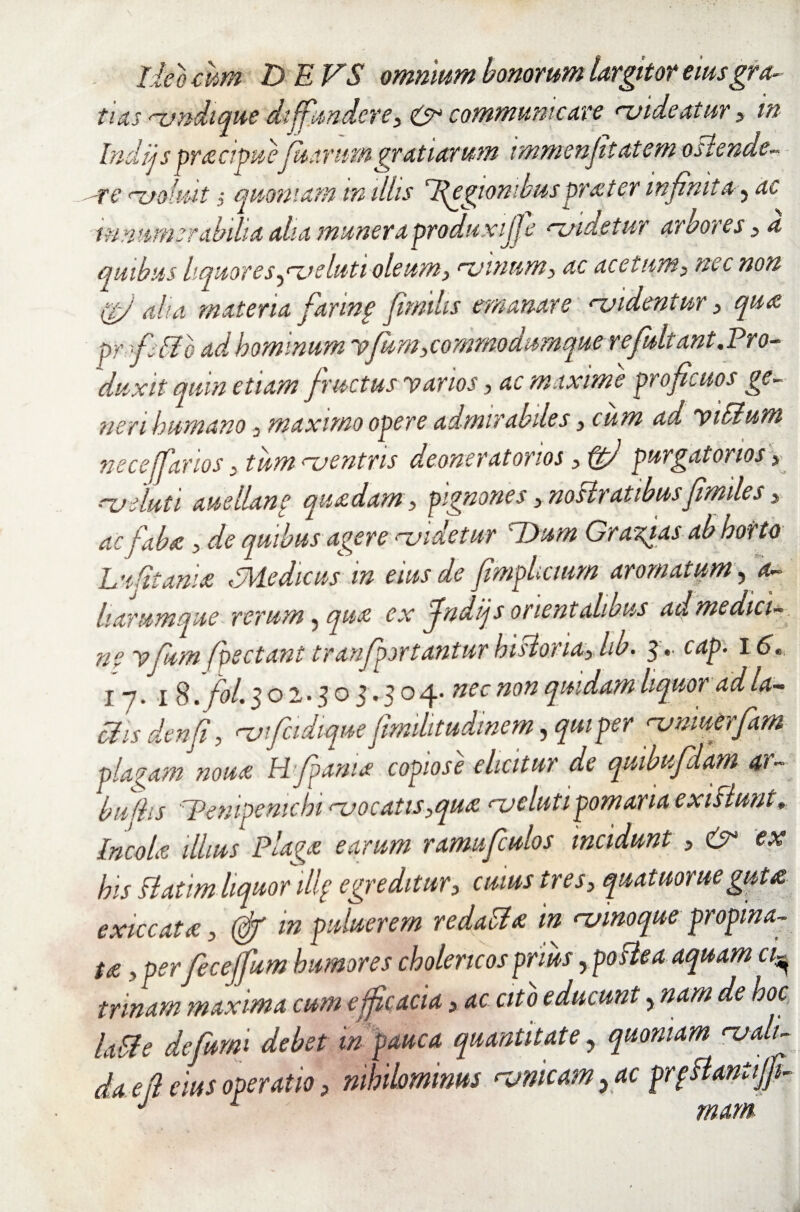 Ideo cum DEVS omnium bonorum largitor eius gra-
tias vndique diffundere, & communicare videatur, in
Indijs præcipuè suarum gratiarum immensitatem ostende-
re voluit; quoniam in illis Regionibus præter infinita, ac
innumerabilia alia munera produxisse videtur arbores, à
quibus liquores, veluti oleum, vinum, ac acetum, nec non
& alia materia farinę similis emanare videntur, quæ
profectò ad hominum vsum, commodumque resultant. Pro-
duxit quin etiam fructus varios, ac maximè proficuos ge-
neri humano, maximo opere admirabiles, cùm ad victum
necessarios, tùm ventris deoneratorios, & purgatorios,
veluti auellanę quædam, pignones, nostratibus similes,
ac fabæ, de quibus agere videtur Dum Grazias ab horto
Lusitaniæ Medicus in eius de simplicium aromatum, a-
liarumque rerum, quæ ex Jndijs orientalibus ad medici-
nę vsum spectant transportantur historia, lib. 3. cap. 16.
17. 18. fol. 302. 303. 304. nec non quidam liquor ad la-
ctis densi, viscidique similitudinem, qui per vniuersam
plagam nouæ Hispaniæ copiosè elicitur de quibusdam ar-
bustis Penipenichi vocatis, quæ veluti pomaria existunt.
Incolæ illius Plagæ earum ramusculos incidunt, & ex
his statim liquor illę egreditur, cuius tres, quatuorue gutæ
exiccatæ, & in puluerem redactæ in vinoque propina-
tæ, per secessum humores cholericos priùs, postea aquam ci-
trinam maxima cum efficacia, ac citò educunt, nam de hoc
lacte desumi debet in pauca quantitate, quoniam vali-
da est eius operatio, nihilominus vnicam, ac pręstantissi-
mam